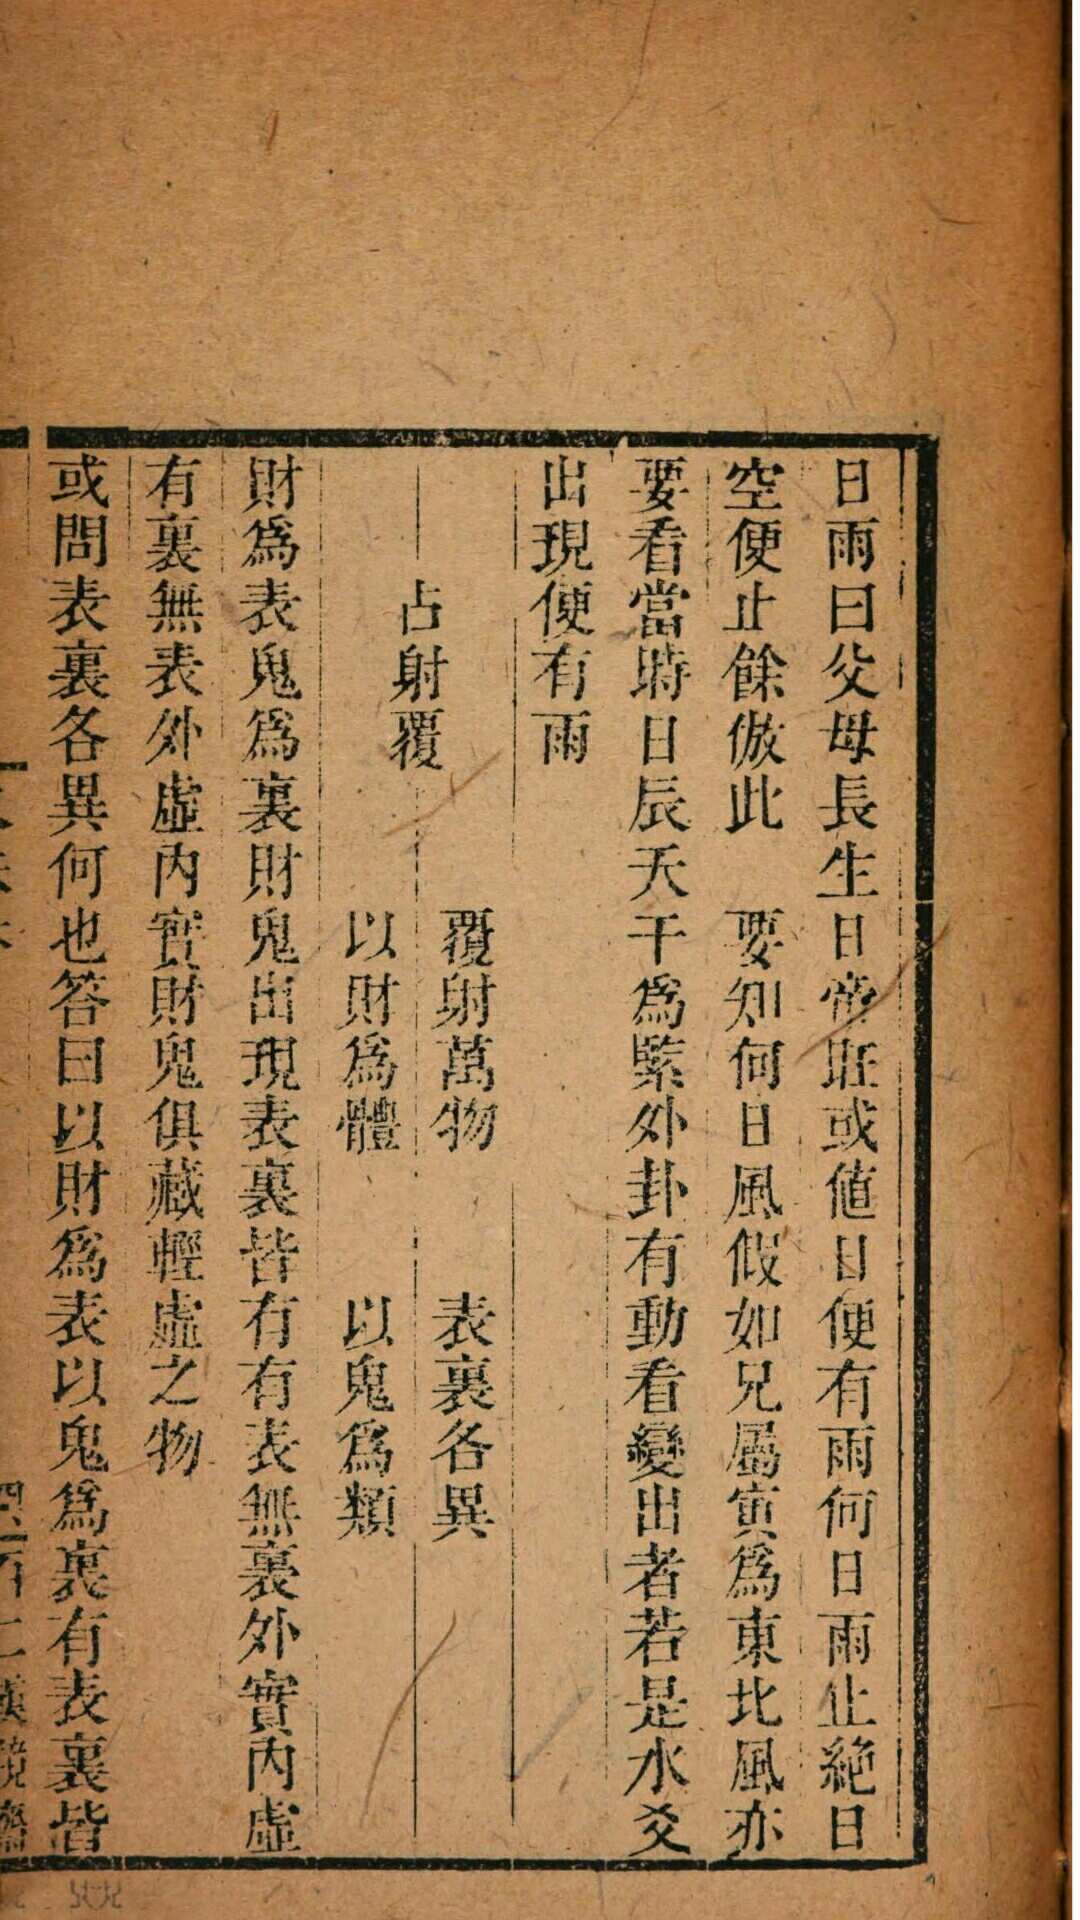 日雨曰父母長生日帝旺或値日便有雨何日雨止絕日
空便止餘倣此　要知何日風假如兄屬寅爲東北風亦
要看當時日辰天干爲緊外卦有動看變出者若是水爻
出現便有雨
占射覆
覆射萬物　表裏各異
以財爲體　以鬼爲類
財爲表鬼爲裏財鬼出現表裏皆有有表無裏外實內虛
有裏無表外虛內實財鬼俱藏輕虛之物
或問表裏各異何也答曰以財爲表以鬼爲裏有表裏皆